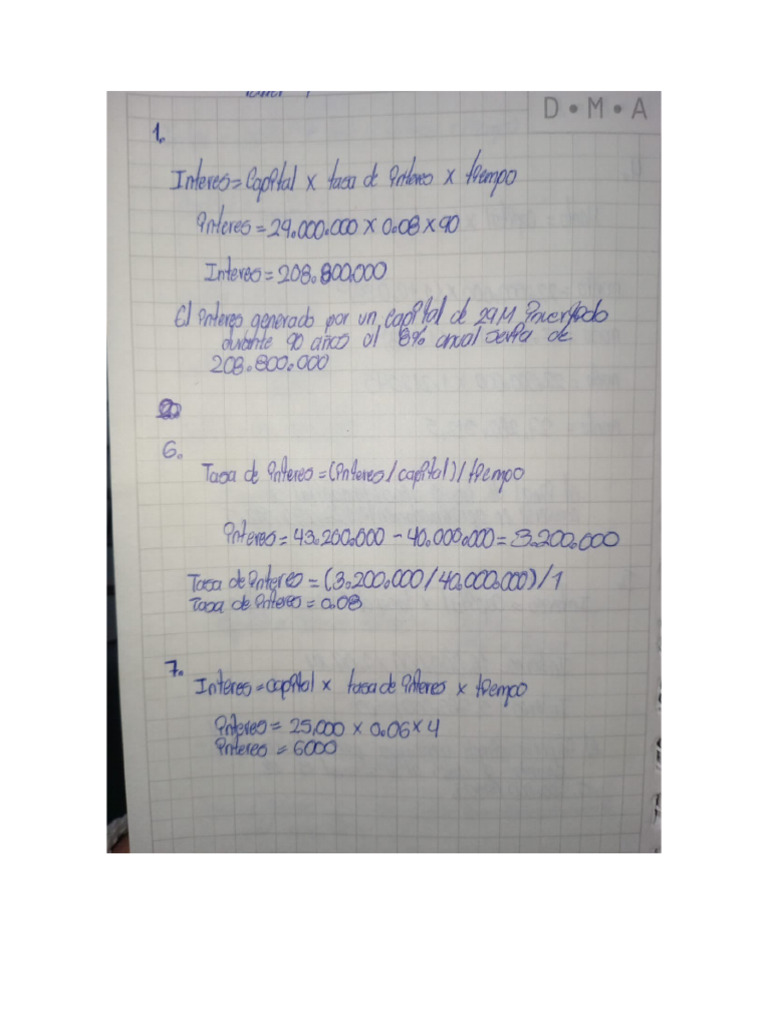 D • M • A
1.
Interes = Capital x tasa de interes x tiempo
interes = 29.000.000 x 0.08 x 90
Interes = 208.800.000
El interes generado por un capital de 29M invertido
durante 90 años al 8% anual seria de
208.800.000
6.
Tasa de interes = (interes / capital) / tiempo
interes = 43.200.000 - 40.000.000 = 3.200.000
Tasa de interes = (3.200.000 / 40.000.000) / 1
Tasa de interes = 0.08
7.
Interes = capital x tasa de interes x tiempo
interes = 25.000 x 0.06 x 4
interes = 6000